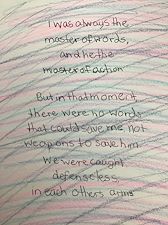 I was always the
master of words,
and he the
master of action
But in that moment,
there were no words
that could save me not
weapons to save him.
We were caught
defenseless,
in each others arms